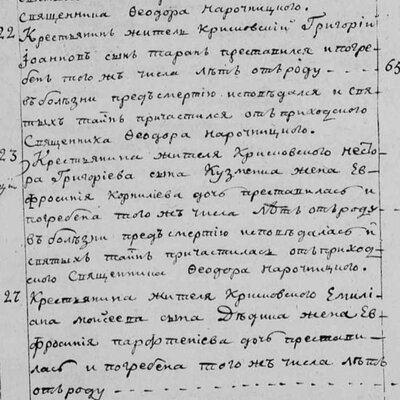 Священника Ѳеодора Нарочницкого.
22 Крестьянинъ житель Крисковскій Григорій
Іоанновъ сынъ Таранъ преставился и погре-
бенъ того жъ числа лѣтъ отъ роду - - - - 65
въ болѣзни предъ смертію исповѣдался и свя-
тыхъ таинъ причастился отъ приходского
Священника Ѳеодора Нарочницкого.
23 Крестьянина жителя Крисковского Несто-
ра Григоріева сына Кузменка жена Ев-
фросинія Корниліева дочь преставилась и
погребена того жъ числа лѣтъ отъ роду
въ болѣзни предъ смертію исповѣдалась и
святыхъ таинъ причастилась отъ приход-
ского Священника Ѳеодора Нарочницкого.
27 Крестьянина жителя Крисковского Емилі-
ана Моисеева сына Дѣдица жена Ев-
фросинія Парфтеніева дочь престави-
лась и погребена того жъ числа лѣтъ
отъ роду - - - - - - - - - -